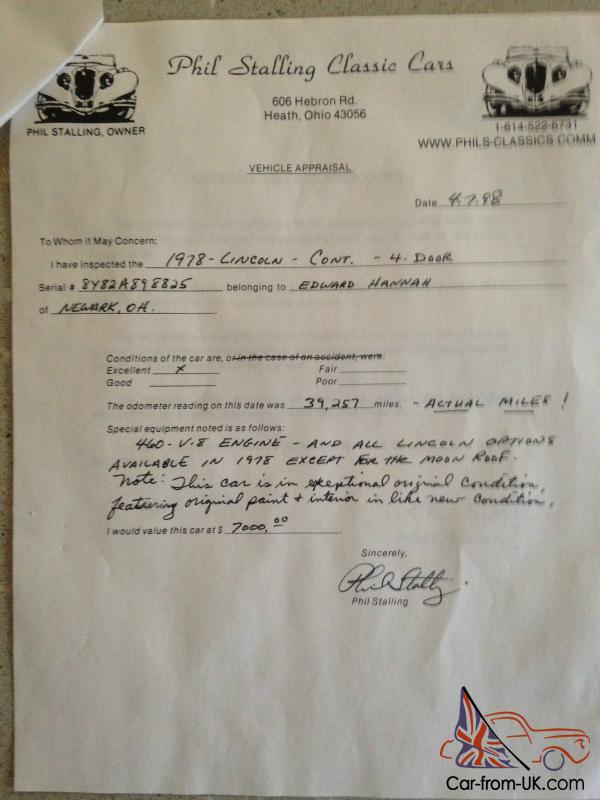 Phil Stalling Classic Cars
606 Hebron Rd.
Heath, Ohio 43056
PHIL STALLING, OWNER
1-614-522-6731
WWW.PHILS-CLASSICS.COMM
VEHICLE APPRAISAL
Date 4.7.98
To Whom It May Concern:
I have inspected the 1978 - LINCOLN - CONT. - 4. DOOR
Serial # 8Y82A898825 belonging to EDWARD HANNAH
of NEWARK, OH.
Conditions of the car are, or in the case of an accident, were:
Excellent x Fair
Good Poor
The odometer reading on this date was 39,257 miles. - ACTUAL MILES !
Special equipment noted is as follows:
460 - V-8 ENGINE - AND ALL LINCOLN OPTIONS
AVAILABLE IN 1978 EXCEPT FOR THE MOON ROOF.
Note: This car is in exceptional original condition,
featuring original paint + interior in like new condition.
I would value this car at $ 7000.00
Sincerely,
Phil Stalling
Phil Stalling
Car-from-UK.com